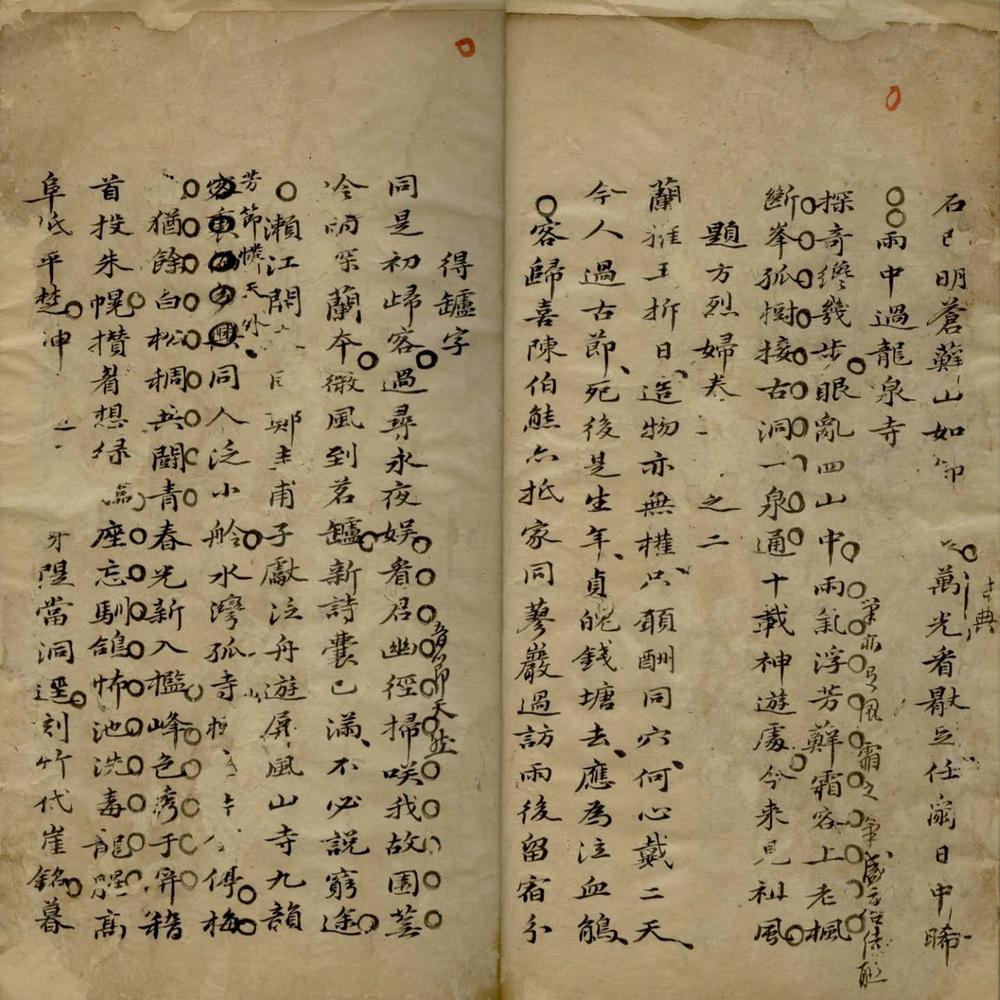 石已明蒼蘚山如萬光看散足任爾日中晞
雨中過龍泉寺
探奇纔幾步眼亂四山中雨氣浮芳蘚霜容上老楓
斷峯孤樹接古洞一泉通十載神遊處今來見祖風
題方烈婦卷之二
蘭摧玉折日造物亦無權只願酬同穴何心戴二天
今人過古節死後是生年貞魄錢塘去應為泣血鵑
客歸喜陳伯熊亦抵家同蓼巖過訪雨後留宿分
得罏字
同是初歸客過尋永夜娛看君幽徑掃咲我故園蕪
冷雨深蘭夲微風到茗罏新詩囊已滿不必說窮途
瀨江鄭圭甫子獻泛舟遊屏風山寺九韻
芳節憐天外
同人泛小舲水灣孤寺停梅
猶餘白松稠共鬪青春光新入檻峰色秀于屏稽
首投朱幌攅眉想綠座忘馴鴿怖池洗毒龍腥高
阜低平楚冲牙隄當洞逕刻竹代崖銘暮